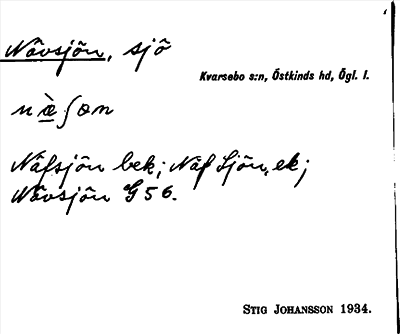 Nävsjön, sjö
Kvarsebo s:n, Östkinds hd, Ögl. l.
næ̀ʃөn
Näfsjön bek; Näf Sjön, ek;
Nävsjön G 56.
Stig Johansson 1934.